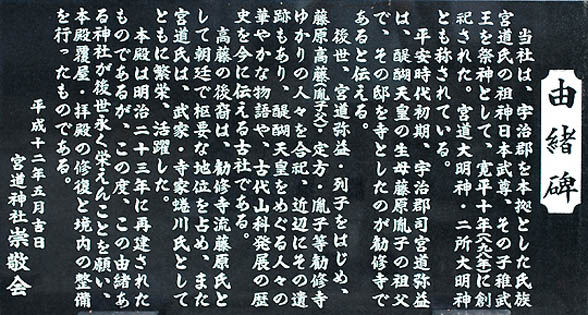 由緒碑
当社は、宇治郡を本拠とした氏族
宮道氏の祖神日本武尊、その子稚武
王を祭神として、寛平十年(八九八年)に創
祀された。宮道大明神・二所大明神
とも称されている。
平安時代初期、宇治郡司宮道弥益
は、醍醐天皇の生母藤原胤子の祖父
で、その邸を寺としたのが勧修寺で
あると伝える。
後世、宮道弥益・列子をはじめ、
藤原高藤(胤子父)・定方・胤子等勧修寺
ゆかりの人々を合祀、近辺にその遺
跡もあり、醍醐天皇をめぐる人々の
華やかな物語や、古代山科発展の歴
史を今に伝える古社である。
高藤の後裔は、勧修寺流藤原氏と
して朝廷で枢要な地位を占め、また
宮道氏は、武家・寺家蜷川氏として
ともに繁栄、活躍した。
本殿は明治二十三年に再建された
ものであるが、この度、この由緒あ
る神社が後世永く栄えんことを願い、
本殿覆屋・拝殿の修復と境内の整備
を行ったものである。
平成十二年五月吉日
宮道神社崇敬会